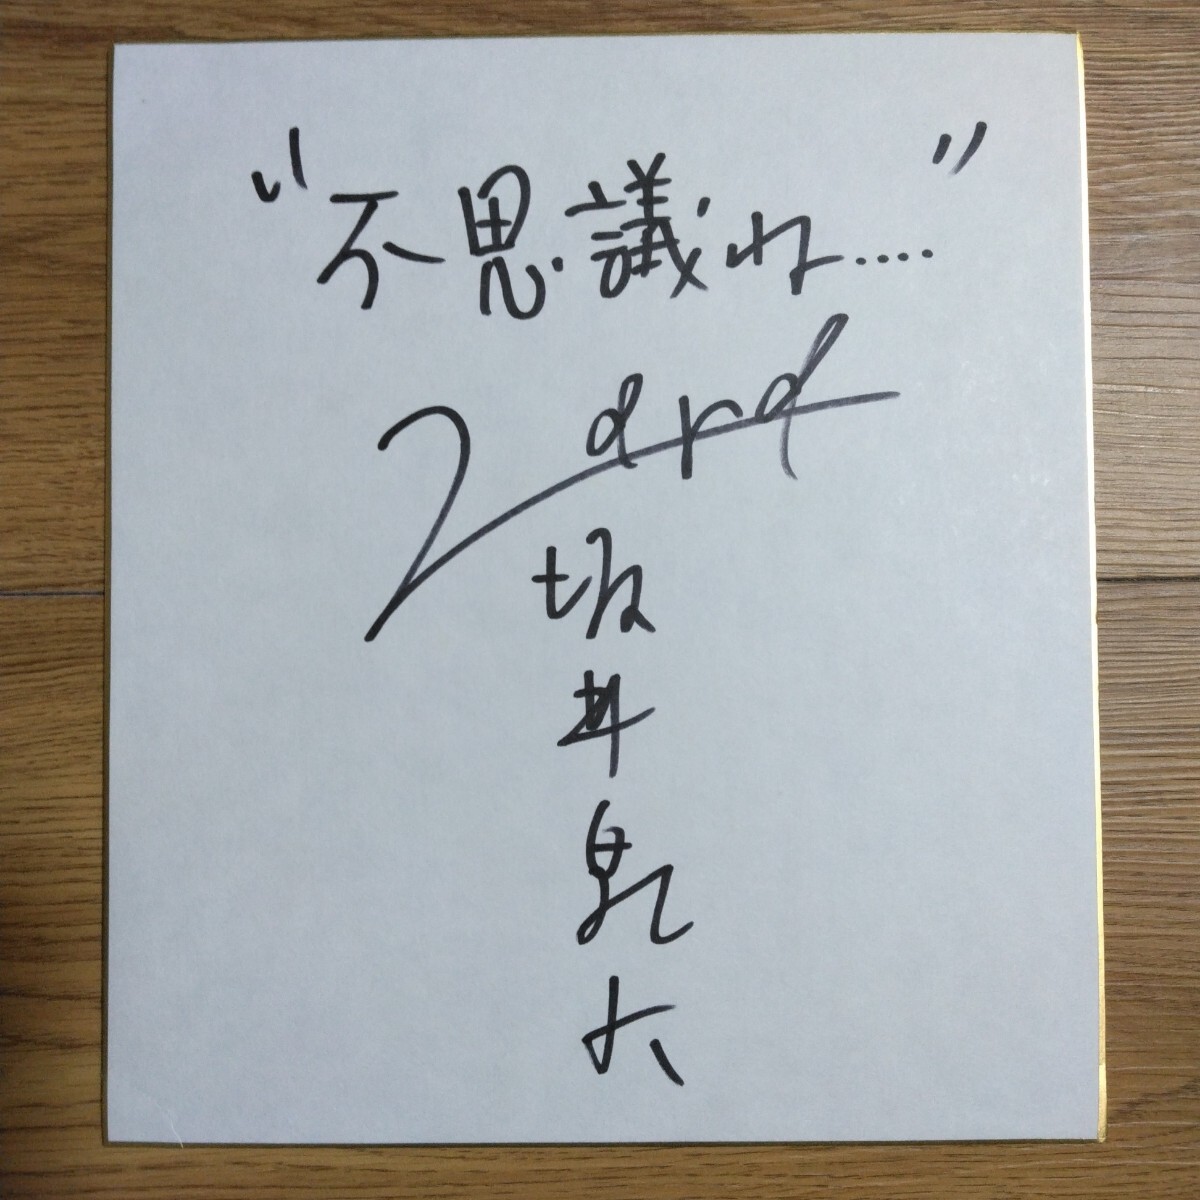 "不思議ね...."
Zard
坂井泉水